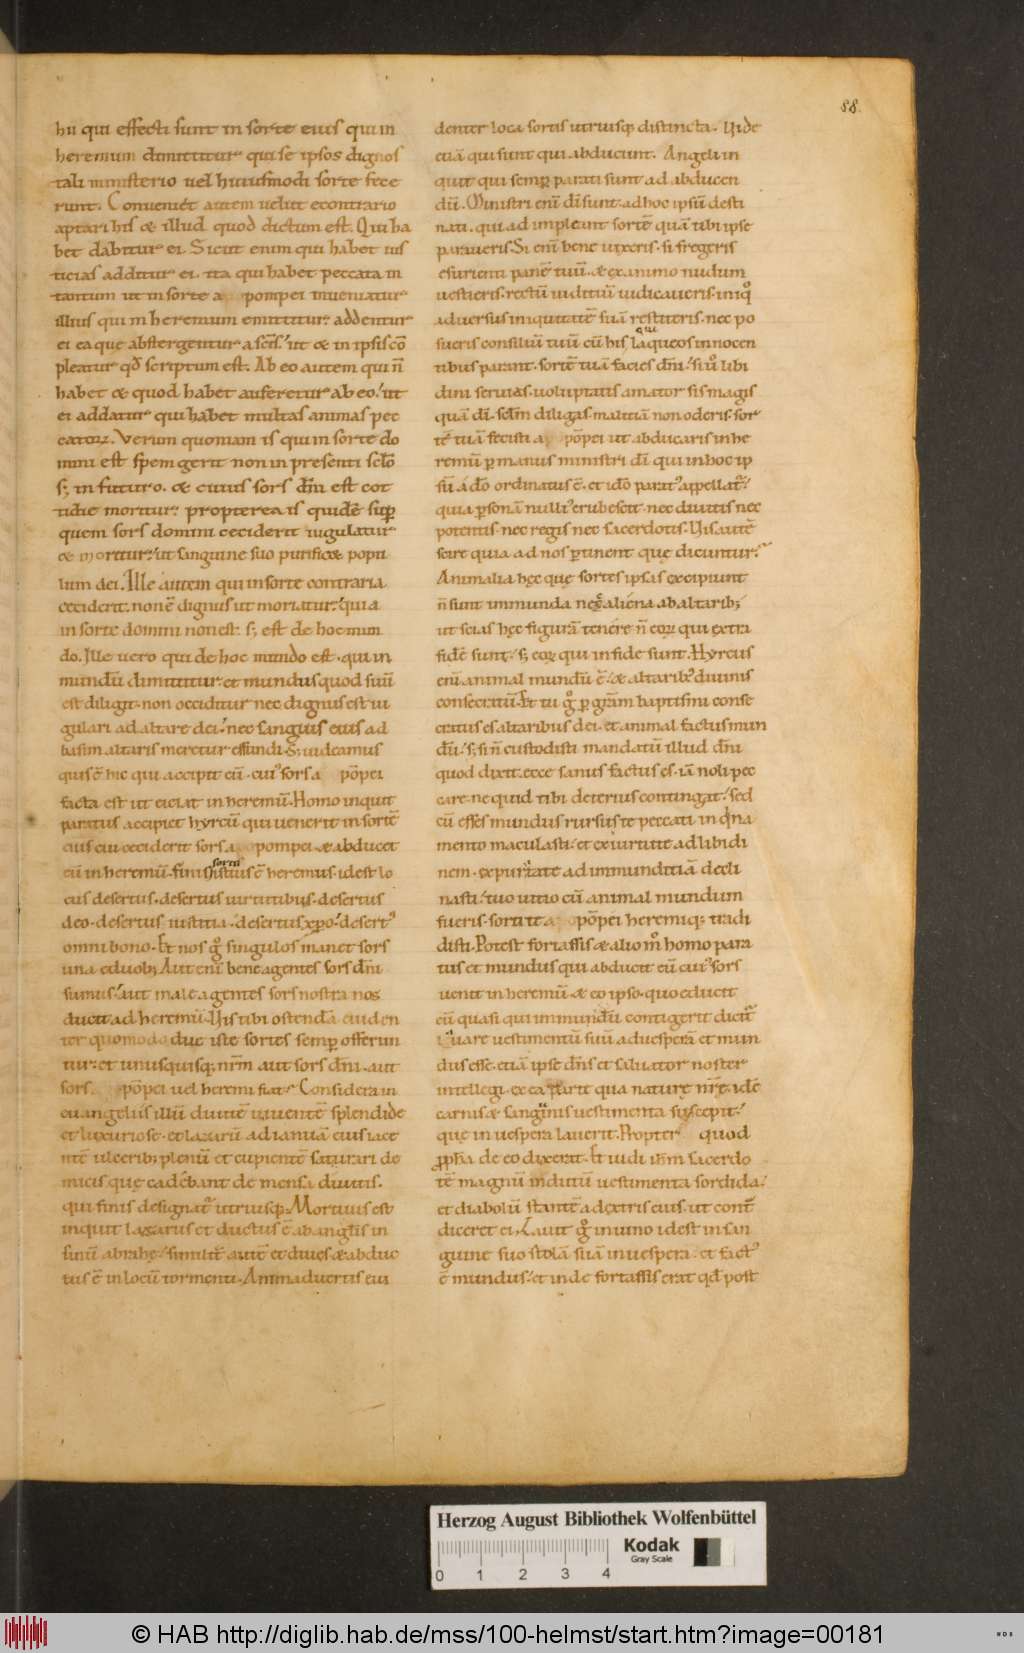 88.
hii qui effecti sunt in sorte eius qui in
heremum dimittitur qui se ipsos dignos
tali ministerio uel huiusmodi sorte fece
runt. Conueniet autem uelut econtrario
aptari his & illud quod dictum est. Qui ha
bet dabitur ei. Sicut enim qui habet ius
ticias additur ei. ita qui habet peccata in
tantum ut in sorte a pompei inueniatur
illius qui in heremum emittitur. addentur
ei ea que abstergentur a sc̄is. ut & in ipsis cō
pleatur qđ scriptum est. Ab eo autem qui n̄
habet & quod habet auferetur ab eo. ut
ei addatur qui habet multas animas pec
catoꝝ. Verum quoniam is qui in sorte do
mini est spem gerit non in presenti sclō
s; in futuro. & cuius sors dn̄i est cot
tidie moritur. propterea is quidē sup̄
quem sors domini ceciderit iugulatur
& moritur. ut sanguine suo purific& popu
lum dei. Ille autem qui in sorte contraria
ceciderit. non ē dignus ut moriatur. quia
in sorte domini non est. s; est de hoc mun
do. Ille uero qui de hoc mundo est. qui in
mundū dimittitur. et mundus quod suū
est diligit. non occiditur nec dignus est iu
gulari ad altare dei. nec sanguis eius ad
basim altaris meretur effundi. S; uideamus
quis ē hic qui accipit eū. cui᾽ sors a pōpei
facta est ut eiciat in heremū. Homo inquit
paratus accipiet hyrcū qui uenerit in sortē
eius cui ceciderit sors a pompei & abducet
sortis
eū in heremū. fini istius ē heremus. idest lo
cus desertus. desertus uirtutibus. desertus
deo. desertus iustitia. desertus xp̄o. desert᾽
omni bono. Et nos g̊ singulos manet sors
una eduob; Aut eni bene agentes sors dn̄i
sumus. aut male agentes sors nostra nos
ducit ad heremū. Vis tibi ostendā euiden
ter quomodo due iste sortes semp̄ offerun
tur. et unusquisq; nr̄m aut sors dn̄i. aut
sors. pōpei uel heremi fiat. Considera in
euangeliis illū diuitē uiuentē splendide
et luxuriose. et lazarū ad ianuā eius iace
ntē ulcerib; plenū et cupientē saturari de
micis que cadebant de mensa diuitis.
qui finis designat᾽ utriusq;. Mortuus est
inquit lazarus et ductus ē ab angelis in
sinū abrahe. similit̄ autē et diues & abduc
tus ē in locū tormenti. Animaduertis eui
denter loca sortis utriusq; distincta. Vide
etiā qui sunt qui abducunt. Angeli in
quit qui semp̄ parati sunt ad abducen
dū. Ministri eni dī sunt. ad hoc ipsū desti
nati. qui ad impleant sortē quā tibi ipse
paraueris. Si eni bene uixeris. si fregeris
esurienti panē tuū. & ex animo nudum
uestieris. rectū iudiciū iudicaueris. iniq̊
aduersus iniquitatē suā restiteris. nec po
qui
sueris consiliū tuū cū his laqueos innocen
tibus parant. sortē tuā facies dn̄i. si u̇ libi
dini seruias. uoluptatis amator sis magis
quā dī. sclm diligas malitiā non oderis. sor
tē tuā fecisti a pōpei ut abducaris in he
remū p̄ manus ministri dī qui in hoc ip
sū a do ordinatus ē. et ido parat᾽ appellat᾽.
quia p̄sonā nulli᾽ erubescit. nec diuitis nec
potentis. nec regis nec sacerdotis. Vis autē
scire quia ad nos p̄tinent que dicuntur.
Animalia hec que sortes ipsas excipiunt
n̄ sunt immunda nec aliena ab altarib;
ut scias hec figurā tenere n̄ eoꝝ qui extra
fidē sunt. s; eoꝝ qui in fide sunt. Hyrcus
eni animal mundū ē. & altarib᾽ diuinis
consecratū. Et tu g̊ p̄ grām baptismi conse
cratus es altaribus dei. et animal factus mun
dū. s; si n̄ custodisti mandatū illud dn̄i
quod dixit. ecce sanus factus es. iā noli pec
care. ne quid tibi deterius contingat. sed
cū esses mundus rursus te peccati inquina
mento maculasti. et ex uirtute ad libidi
nem. ex puritate ad immunditiā decli
nasti. tuo uitio cū animal mundum
fueris. sortita pōpei heremiq; tradi
disti. Potest fortassis & alio m̊ homo para
tus et mundus qui abducit eū cui᾽ sors
uenit in heremū. & eo ipso. quo educit
eū quasi qui immundū contigerit dicit᾽
lauare uestimentū suū ad uesperā et mun
dus esse. etiā ipse dn̄s et saluator noster
intellegi. ex ea parte qua nature nr̄e. idē
carnis & sanguinis uestimenta suscepit.
que in uespera lauerit. Propter quod
ꝓpha de eo dixerat. Et uidi ihm sacerdo
tē magnū indutū uestimenta sordida.
et diabolū stantē a dextris eius. ut cont᾽
diceret ei. Lauit g̊ in uino idest in san
guine suo stolā suā in uespera. et fact᾽
ē mundus. et inde fortassis erat qđ post
Herzog August Bibliothek Wolfenbüttel
Kodak
Gray Scale
0 1 2 3 4
© HAB http://diglib.hab.de/mss/100-helmst/start.htm?image=00181